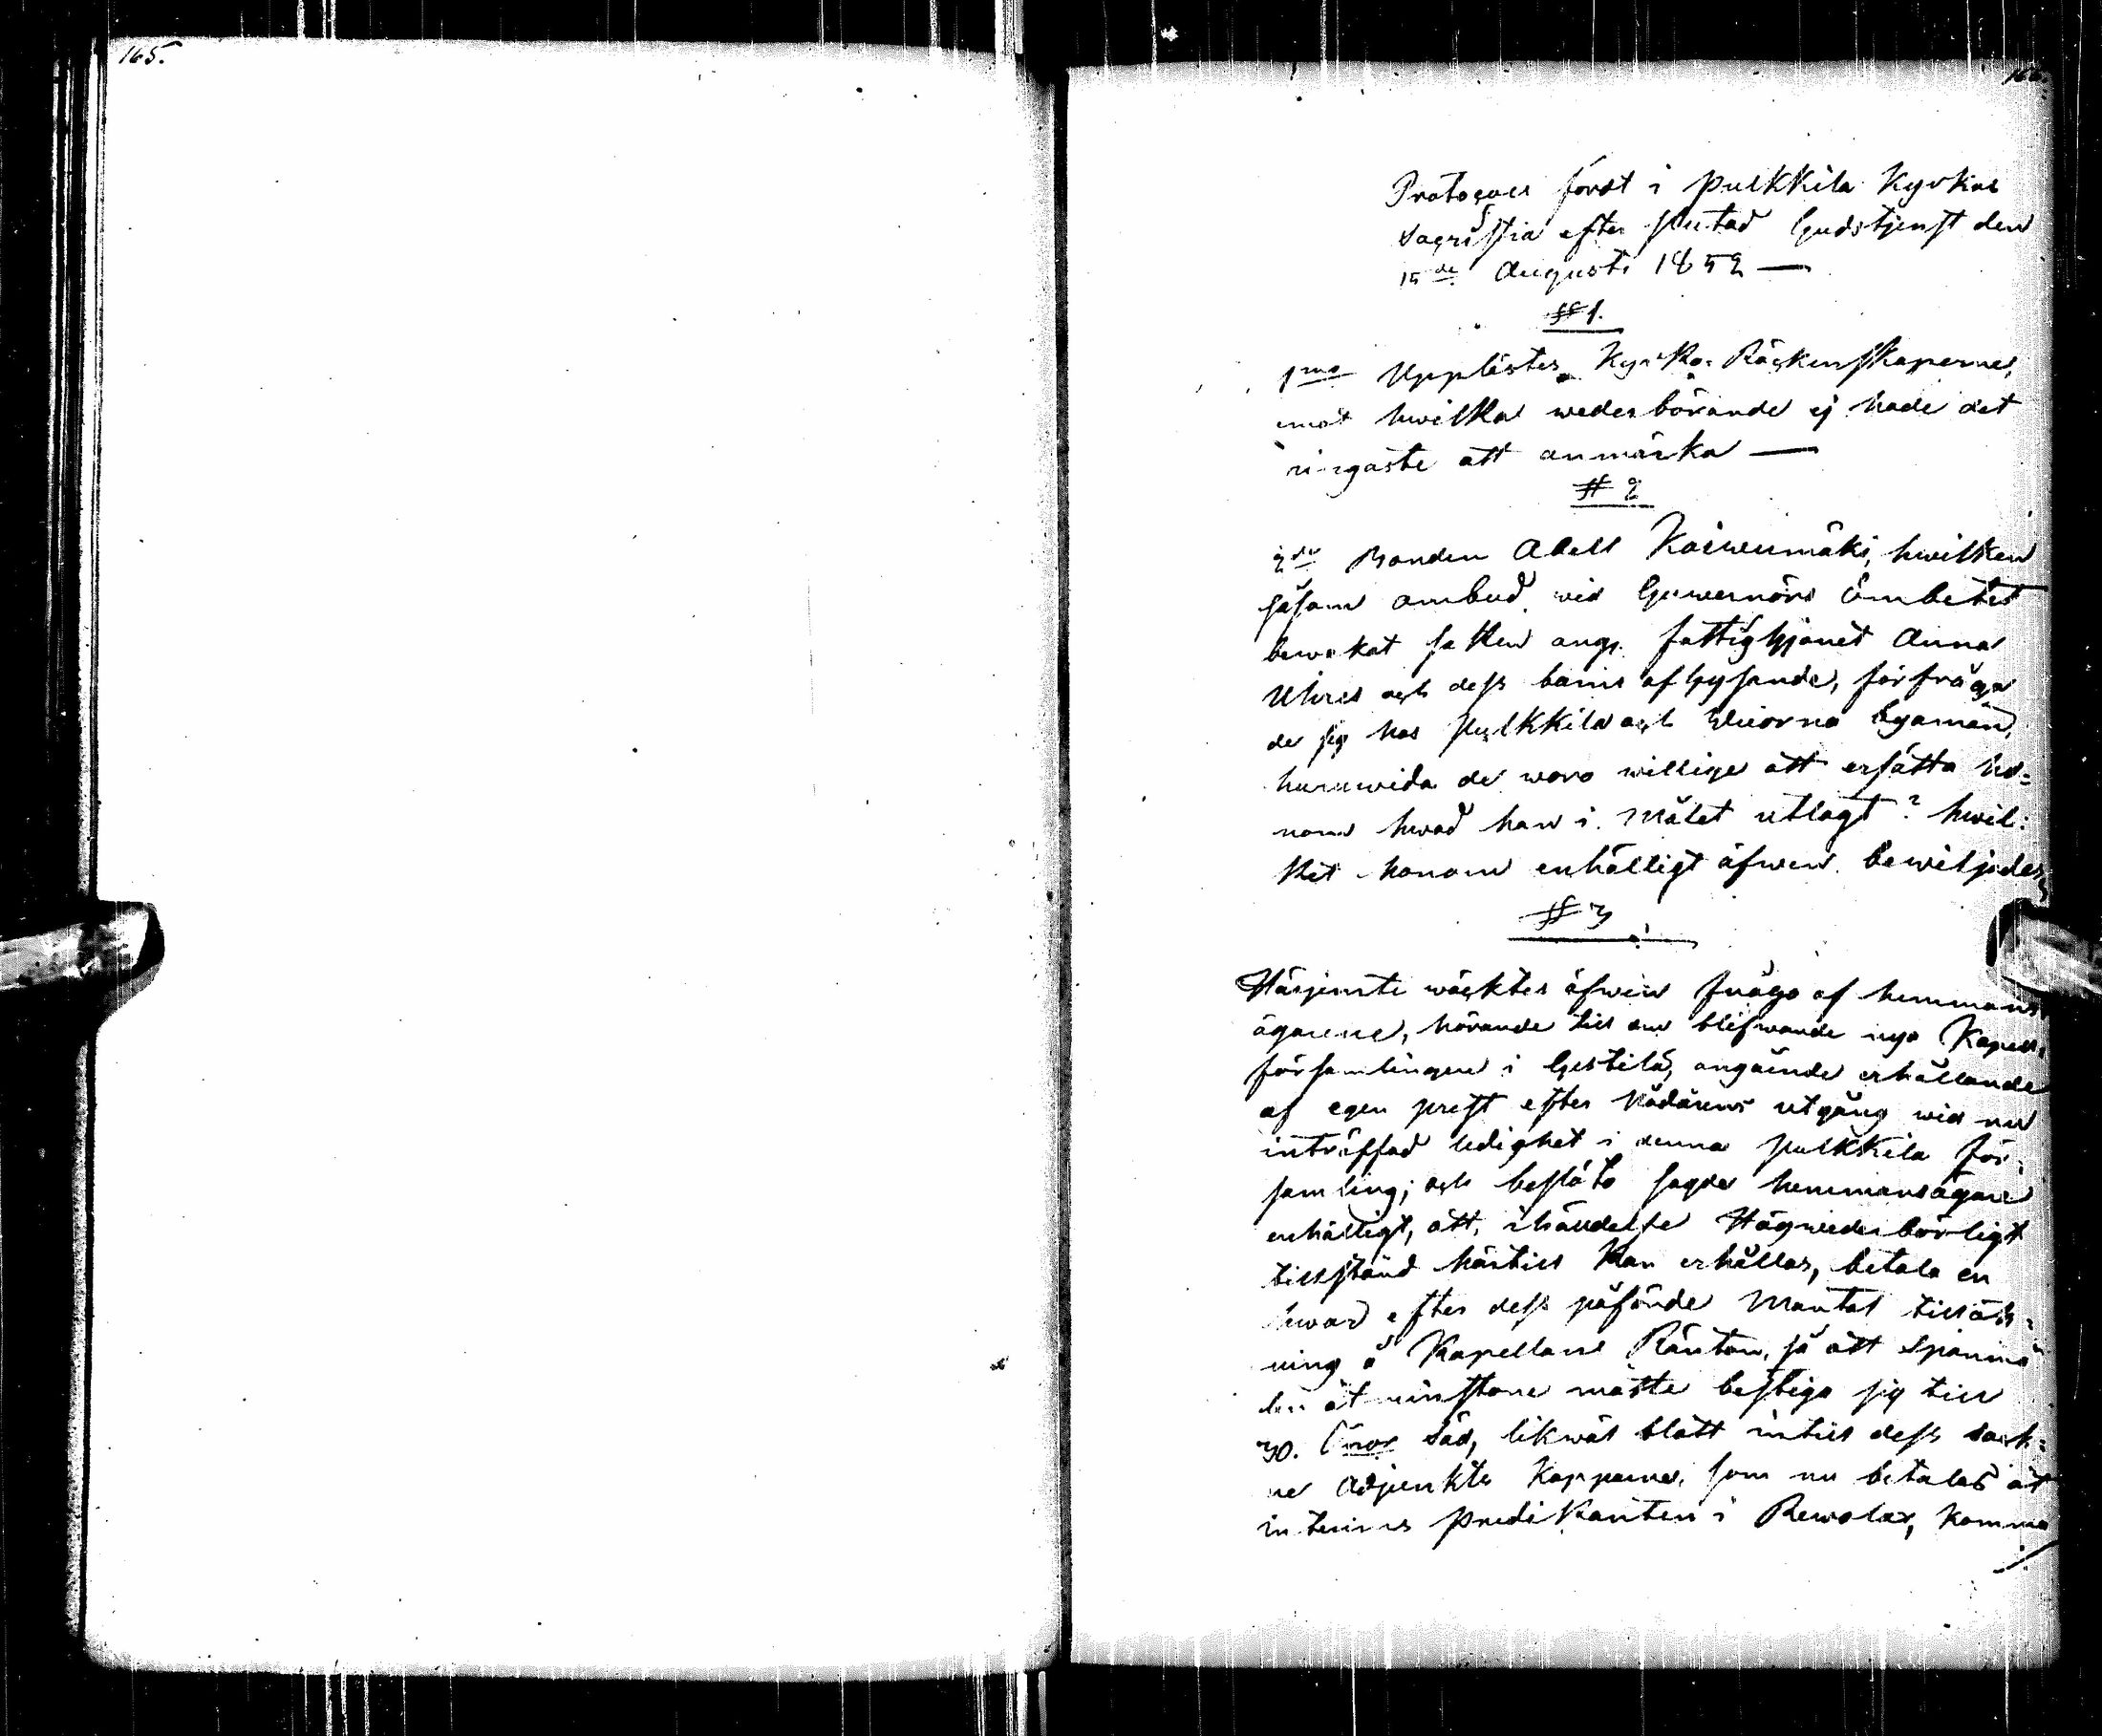 165.
166.
Protocoll fördt i Pulkkila Kyrkas
Sacristia efter slutad Gudstjenst den
15de Augusti 1852 —
§ 1.
1mo Upplästes Kyrko Räckenskaperne,
mot hwilka wederbörande ej hade det
ringaste att anmärka —
§ 2
2do Bonden Abell Koiwumäki, hwilken
såsom ombud wid Guwernörs Embetet
bewakat saken ang. fattighjonet Anna
Uhres och dess barns afhysande, förfråga
de sig hos Pulkkila och Wuorno byamän,
huruwida de woro willige att ersätta ho=
nom hwad han i Målet utlagt? hwil=
ket honom enhälligt äfwen bewiljades,
§ 3
Härjemte wäcktes äfwen fråga af hemmans
ägarene, hörande till en blifwande nya Kapell
församlingen i Gestilä, angående erhållande
af egen prest efter Nådårens utgång wid nu
inträffad ledighet i denna Pulkkila för=
samling; och beslöto sagde hemmansägare
enhälligt, att, ihändelse Högwederbörligt
tillstånd härtill kan erhållas, betala en
hwar efter dess påförde Mantal tillök=
ning å Kapellans Räntan, så att Spanmå
len åt minstone måste bestiga sig till
30. Tnor Säd, likwäl blott intill dess sock=
ne Adjunkts Kapparne, som nu betalas åt
interims predikanten i Rewolax, komma
./.